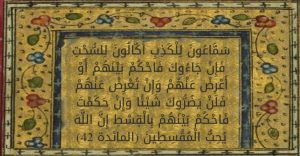 سَمَّاعُونَ لِلْكَذِبِ أَكَّالُونَ لِلسُّحْتِ
فَإِن جَاءُوكَ فَاحْكُم بَيْنَهُمْ أَوْ
أَعْرِضْ عَنْهُمْ وَإِن تُعْرِضْ عَنْهُمْ
فَلَن يَضُرُّوكَ شَيْئًا وَإِنْ حَكَمْتَ
فَاحْكُم بَيْنَهُم بِالْقِسْطِ إِنَّ اللَّهَ
يُحِبُّ الْمُقْسِطِينَ (المائدة 42)